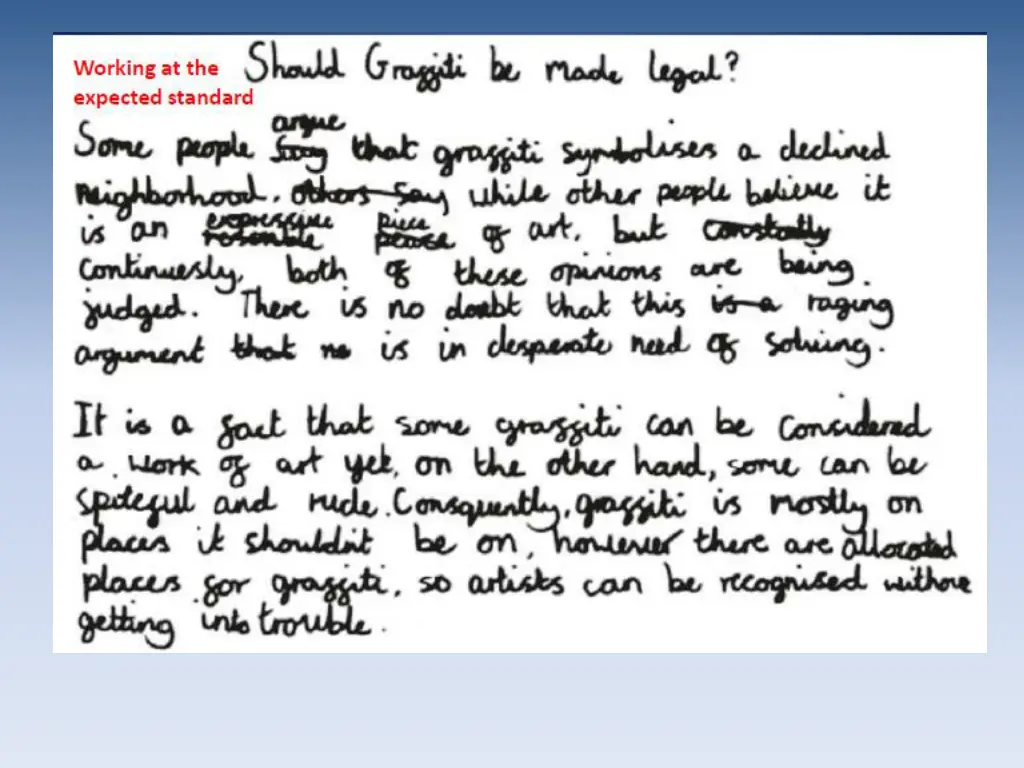 Working at the
expected standard
Should Graffiti be made legal?
argue
Some people that graffiti symbolises a declined
neighborhood. others say while other people believe it
expressive piece
is an resemble peace of art, but constantly
continuesly, both of these opinions are being
judged. There is no doubt that this is a raging
argument that no is in desperate need of solving.
It is a fact that some graffiti can be considered
a work of art yet, on the other hand, some can be
spiteful and rude. Consquently, graffiti is mostly on
places it shouldn't be on, however there are allocated
places for graffiti, so artists can be recognised without
getting into trouble.